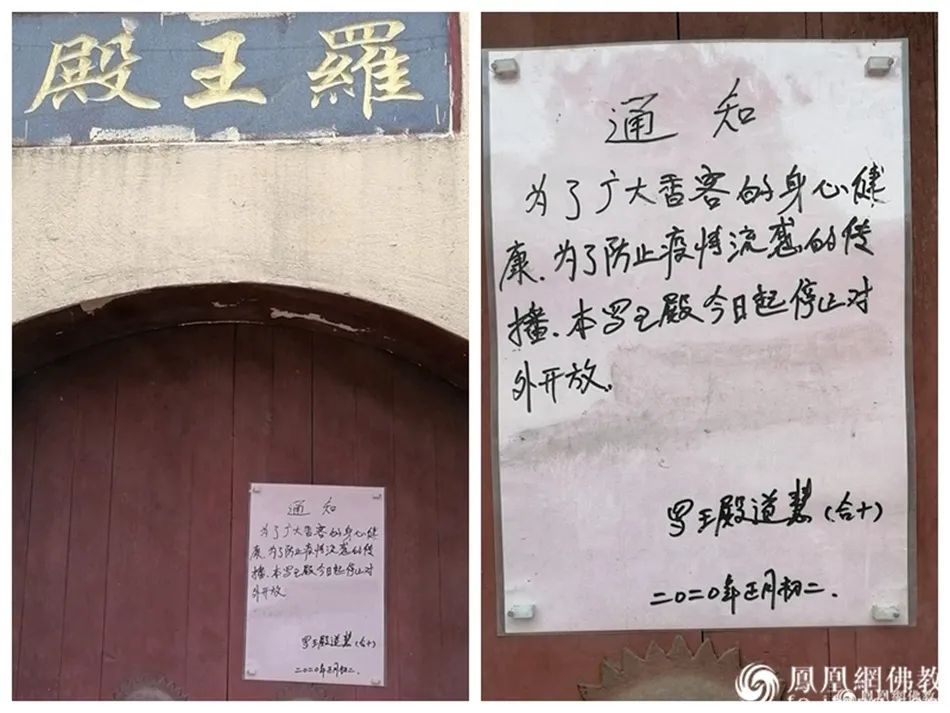 羅王殿
通知
为了广大香客的身心健
康、为了防止疫情流感的传
播、本罗王殿今日起停止对
外开放
罗王殿道慧(合十)
二〇二〇年正月初二.
通知
为了广大香客的身心健
康、为了防止疫情流感的传
播、本罗王殿今日起停止对
外开放.
罗王殿道慧(合十)
二〇二〇年正月初二.
鳳凰網佛教
鳳凰網佛教